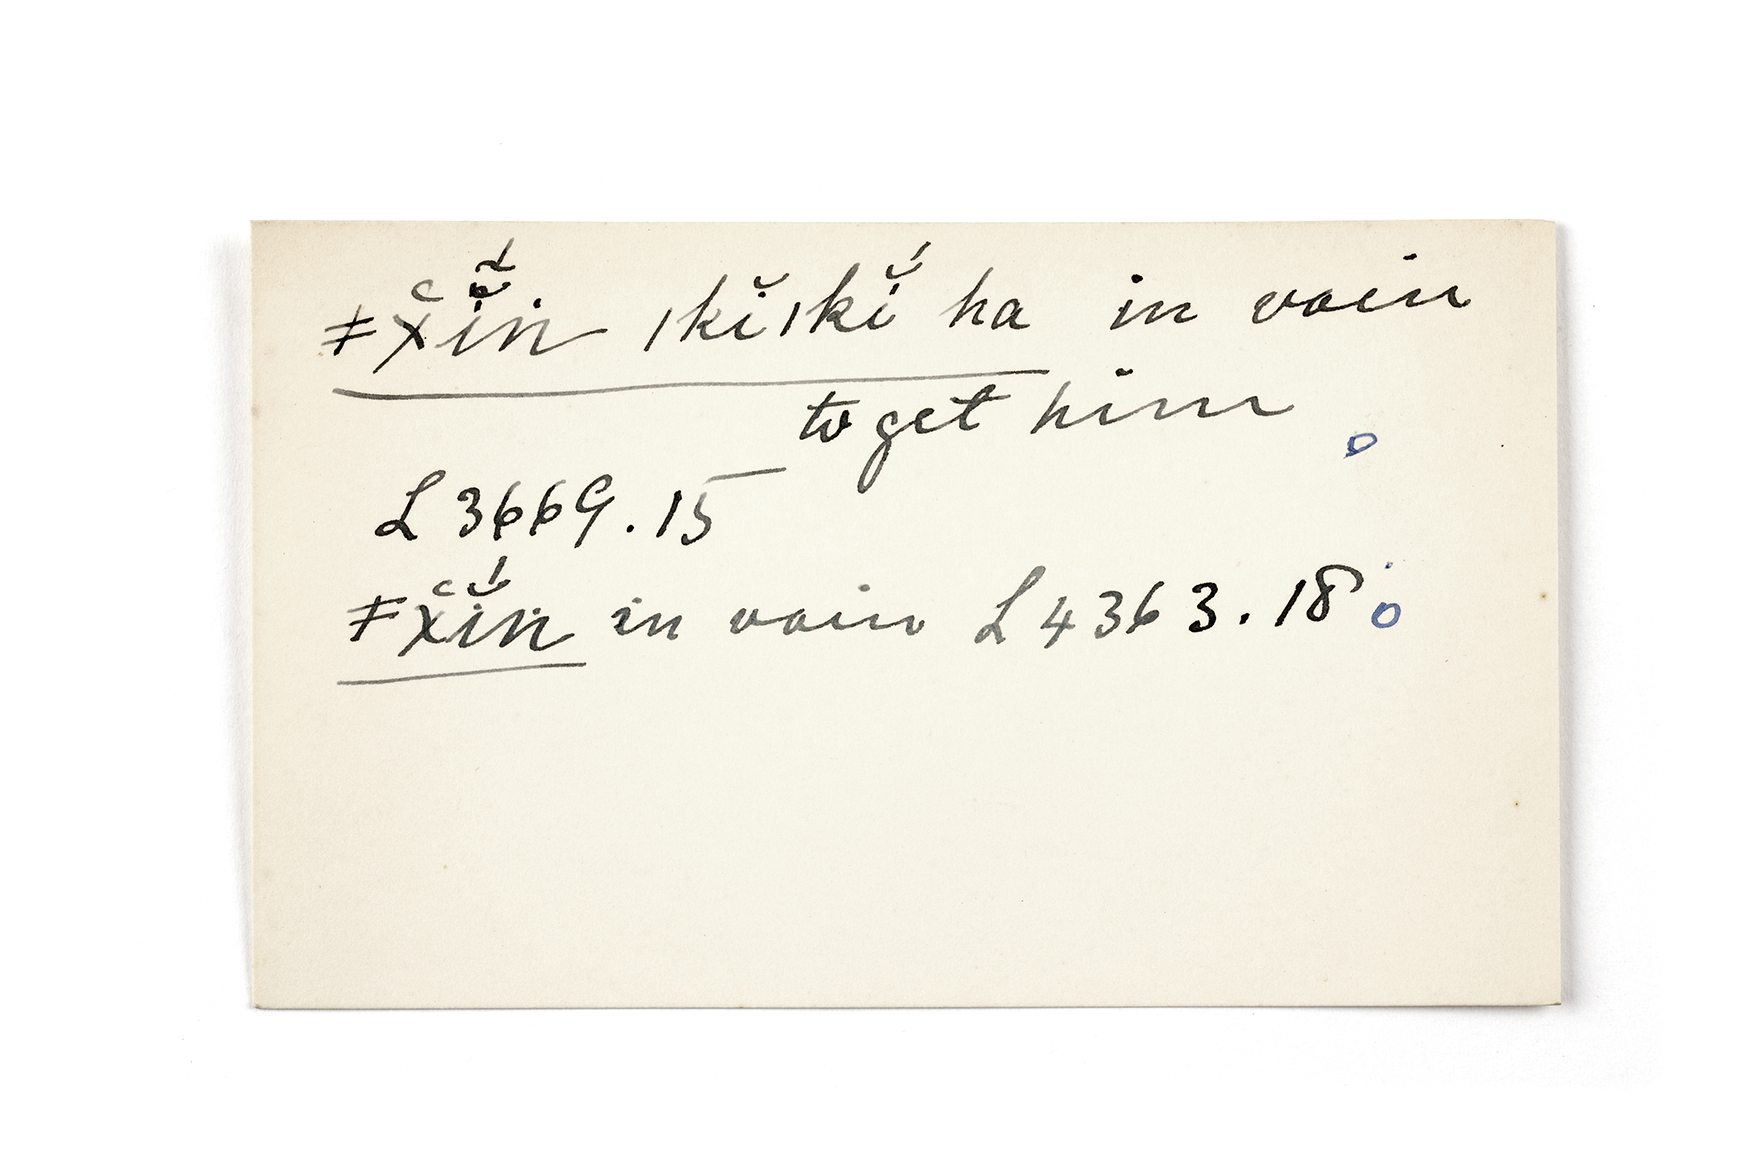 ǂx̆ĭ́ṅ ǀkĭǀkĭ́ ha in vain
to get him
L 3669.15
ǂx̆ĭ́ṅ in vain L 4363.18